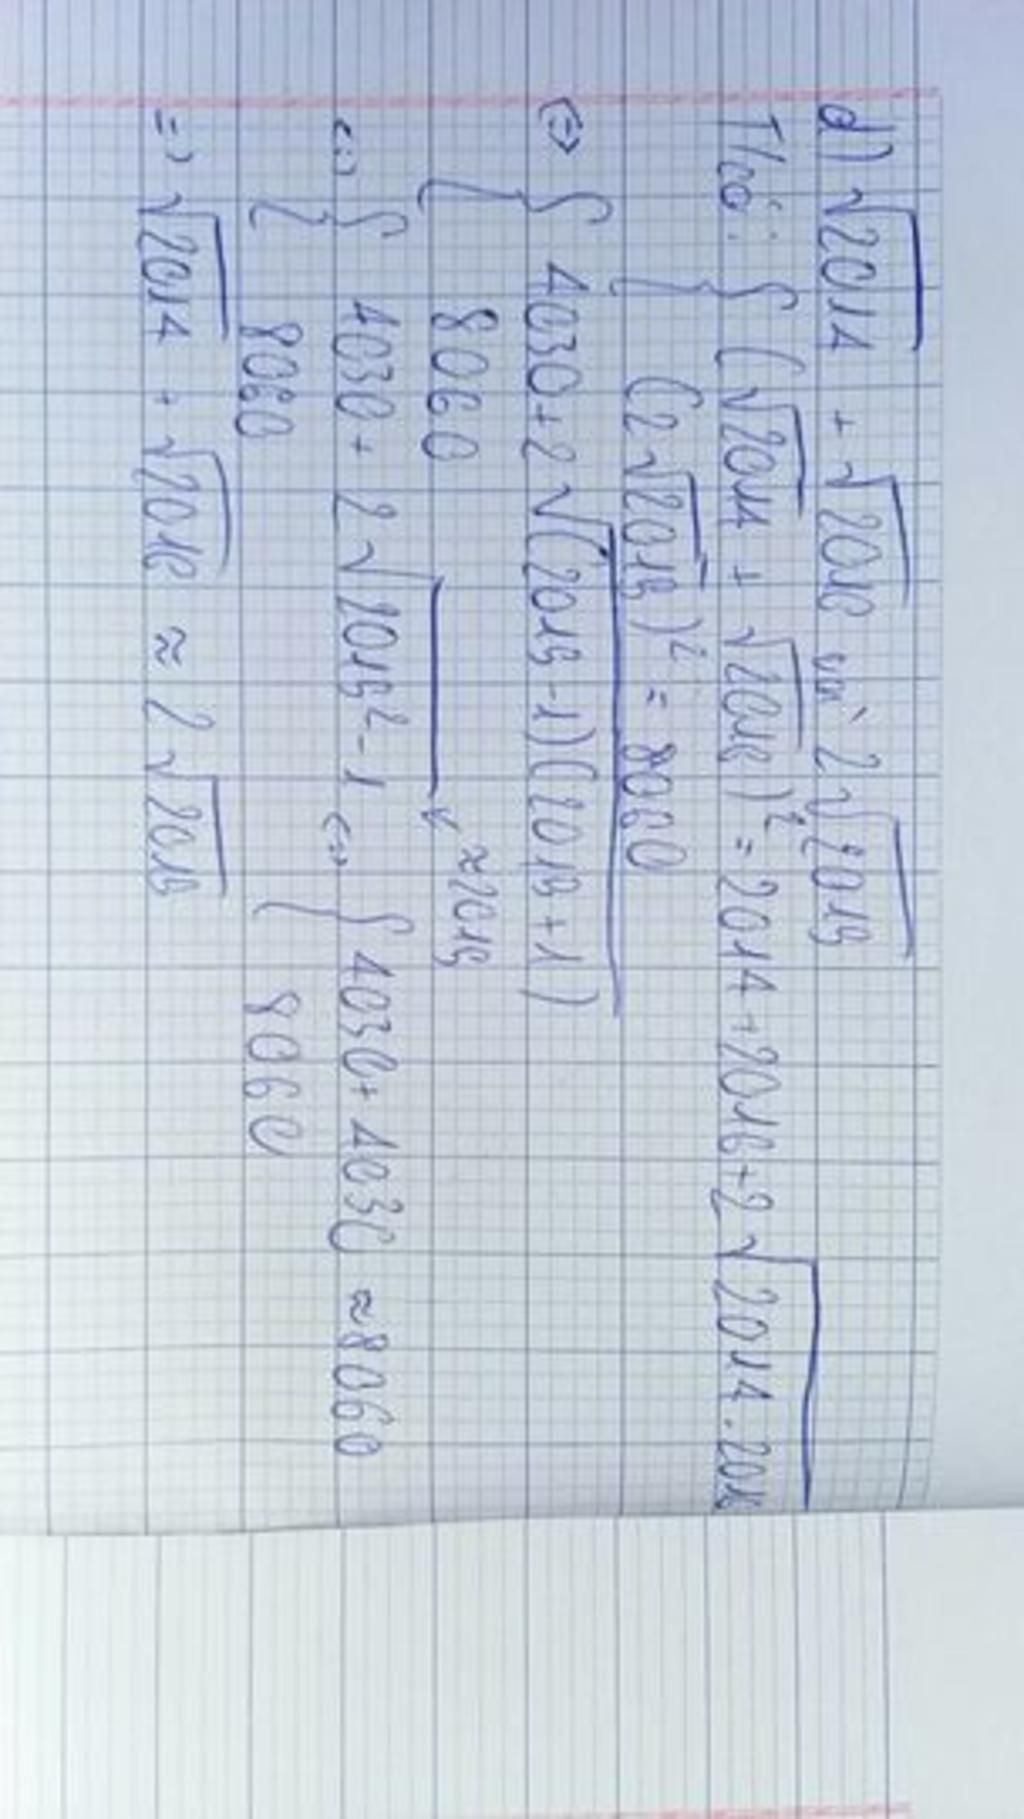 d) √2014 + √2016 và 2√2015
T/có: { (√2014 + √2016)² = 2014 + 2016 + 2√2014.2016
(2√2015)² = 8060
<=> { 4030 + 2√(2015-1)(2015+1)
8060
≈2015
<=> { 4030 + 2√2015²-1 <=> { 4030 + 4030 ≈ 8060
8060 8060
=> √2014 + √2016 ≈ 2√2015